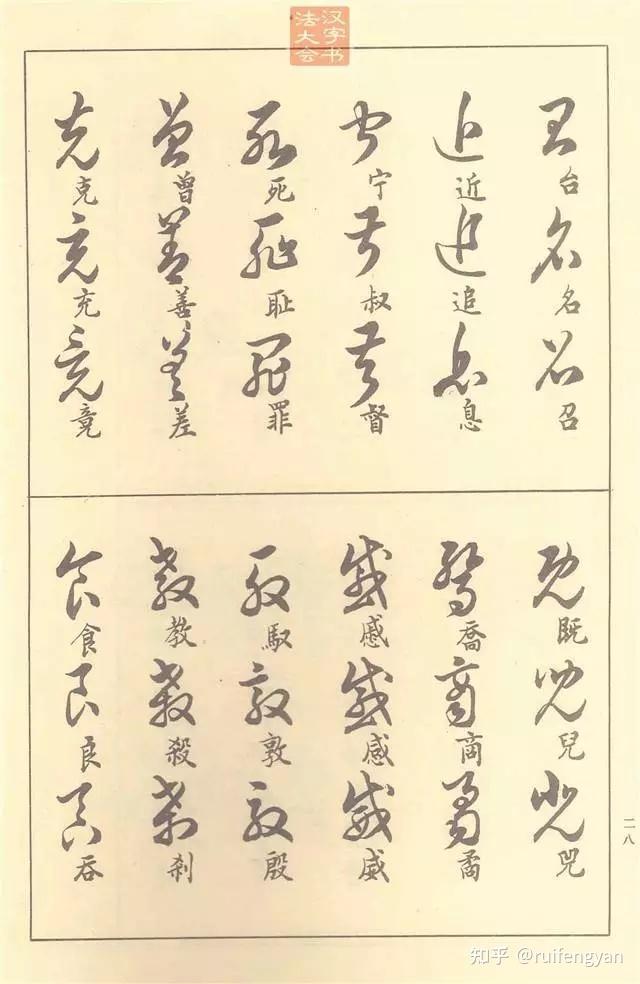 汉字书
法大会
台名召
近追息
宁叔督
死耻罪
曾善差
克充竟
既兒兕
喬商矞
慼感威
馭敦殷
教殺刹
食良吞
二八
知乎 @ruifengyan